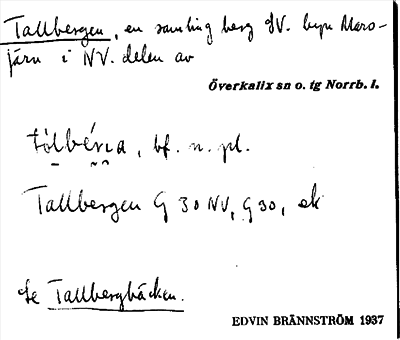 Tallbergen, en samling berg SV. byn Maro-
järn i NV. delen av
Överkalix sn o. tg Norrb. l.
bf. n. pl.
Tallbergen G 30 NV, G 30, ek
se Tallbergbäcken.
EDVIN BRÄNNSTRÖM 1937